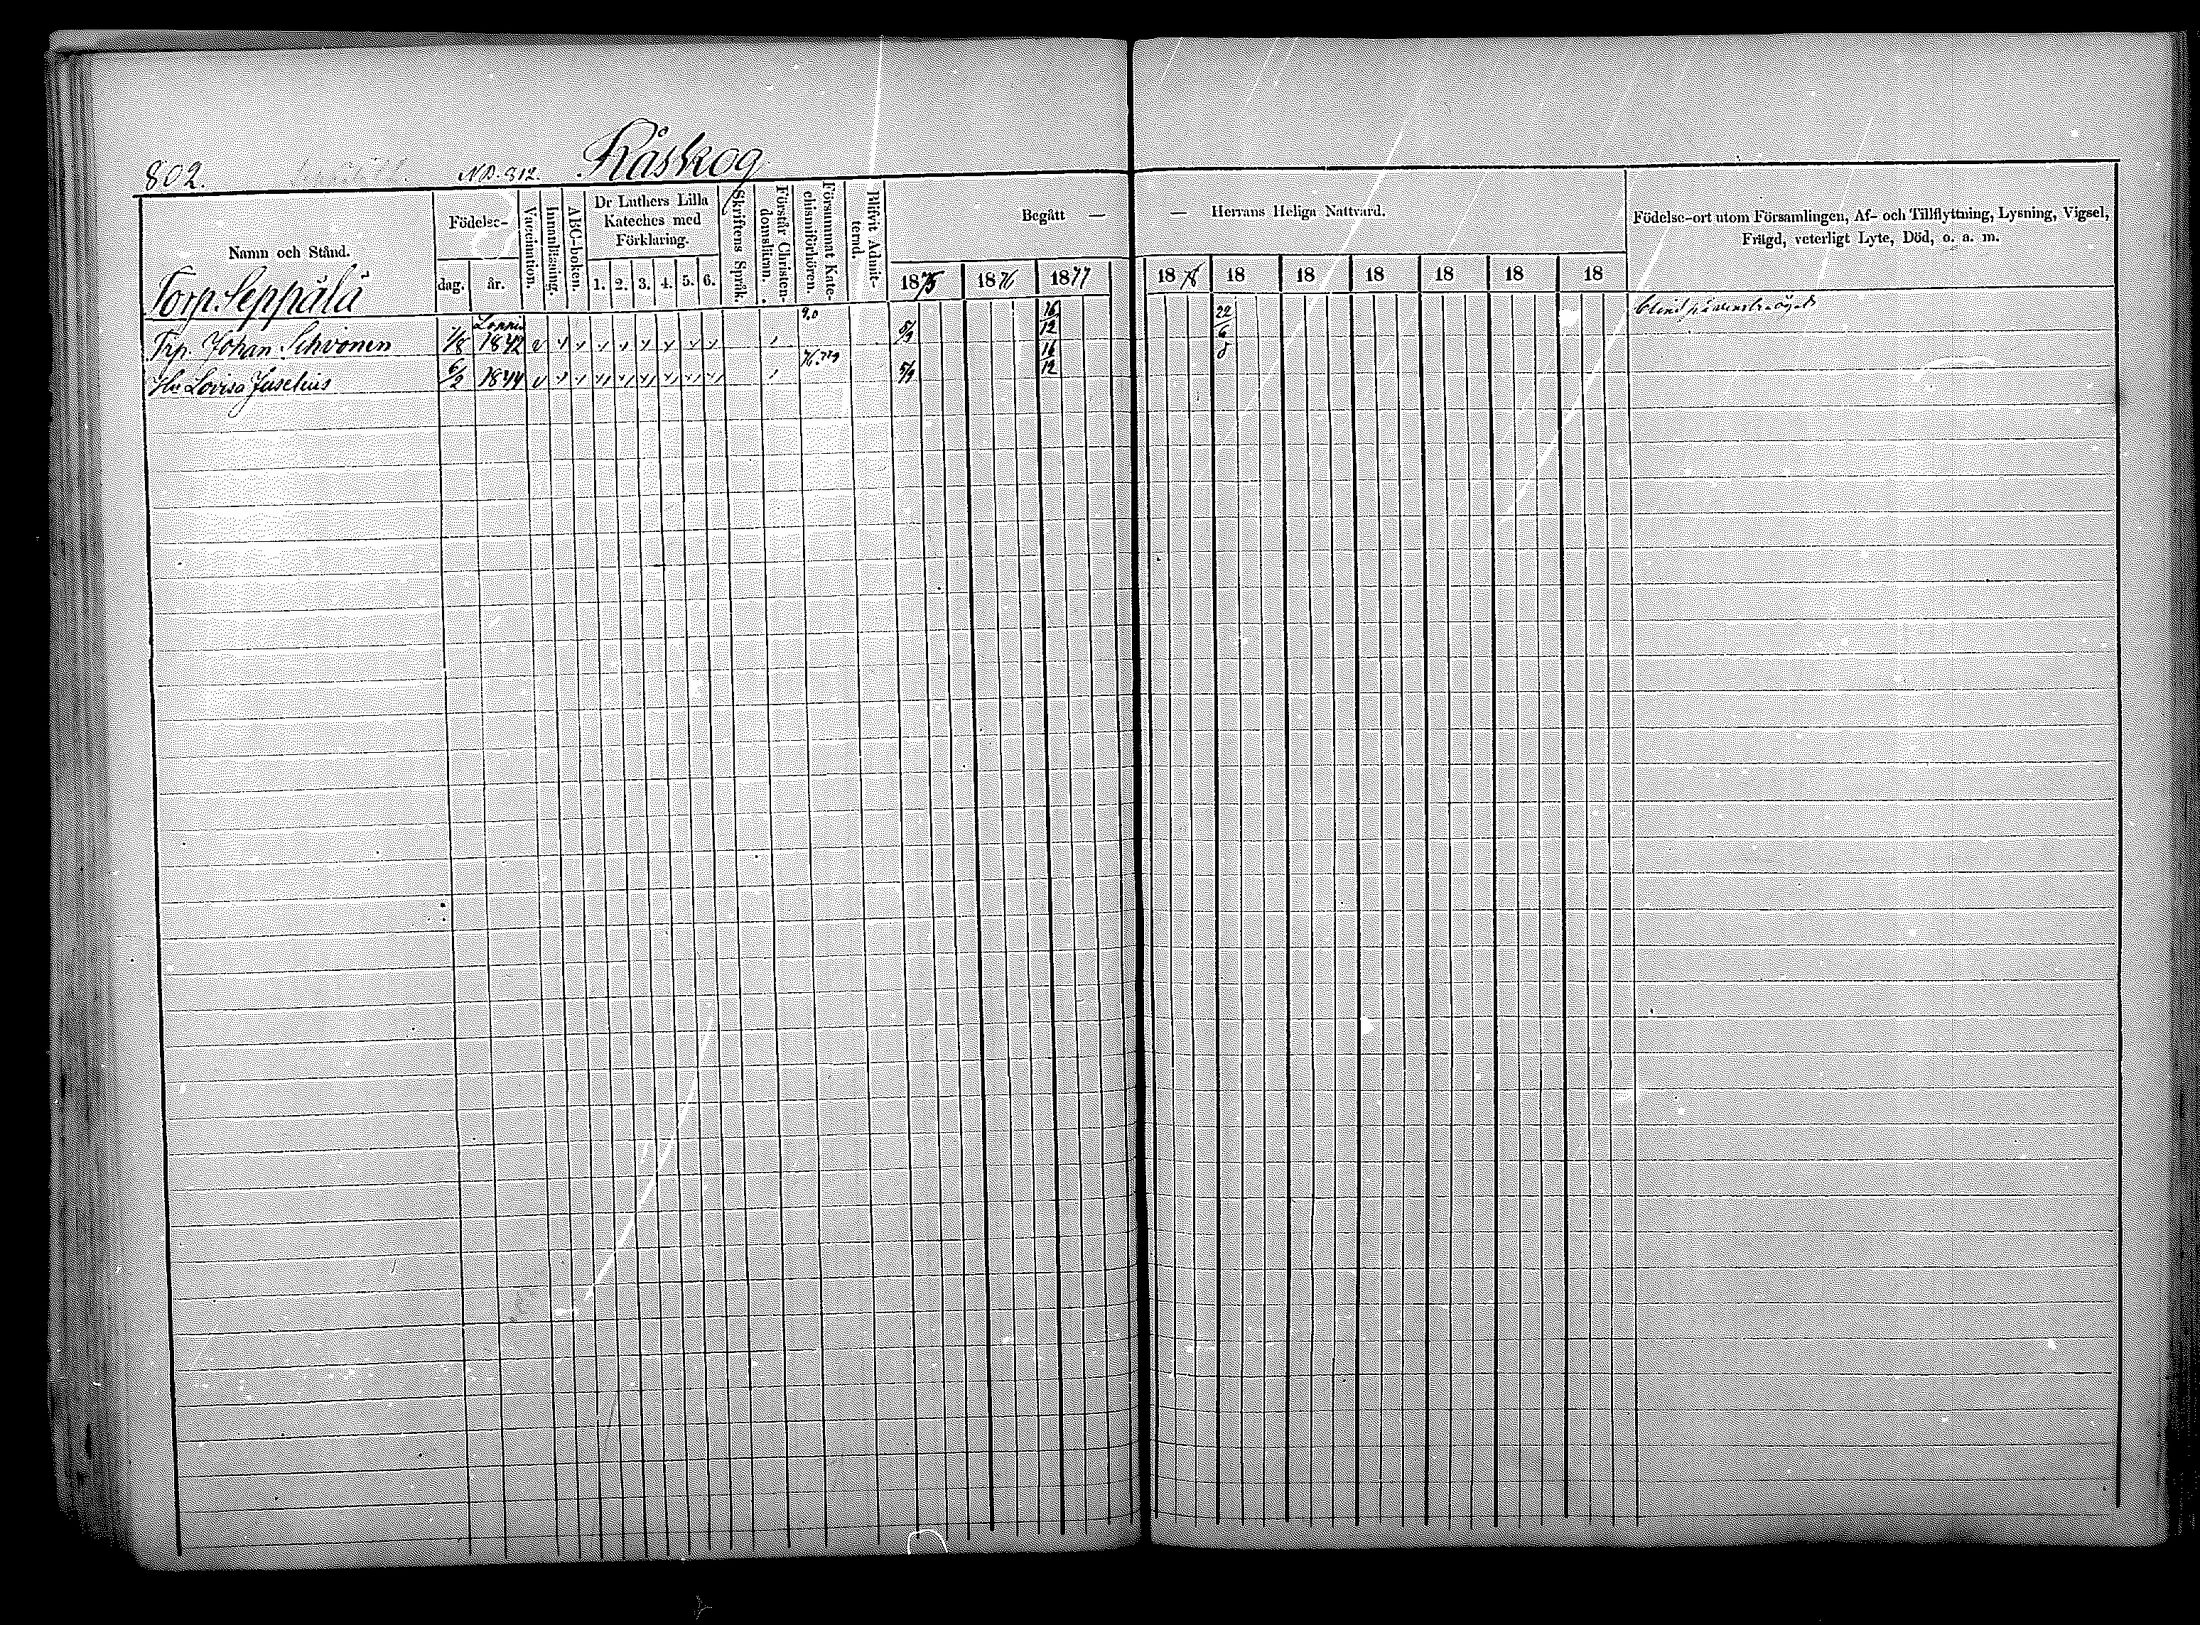 802. N.B. 812. Råskog
Namn och Stånd.
Födelse-
dag. år.
Vaccination.
Innanläsning.
ABC-boken.
Dr Luthers Lilla
Kateches med
Förklaring.
1. 2. 3. 4. 5. 6.
Skriftens Språk.
Förstår Christen-
domslitan.
Försummat Kate-
chismiförhören.
Blifvit Admit-
terad.
Begått —
— Herrans Heliga Nattvard.
1875 1876 1877 1878 18 18 18 18 18 18
Födelse-ort utom Församlingen, Af- och Tillflyttning, Lysning, Vigsel,
Frägd, veterligt Lyte, Död, o. a. m.
Torp. Seppälä
Trp. Johan Sihvonen 1/8 Loppis 1842 5/9 16/12 22/6 blind på venstra ögat
Hu Lovisa Juselius 6/2 1844 5/9 16/12